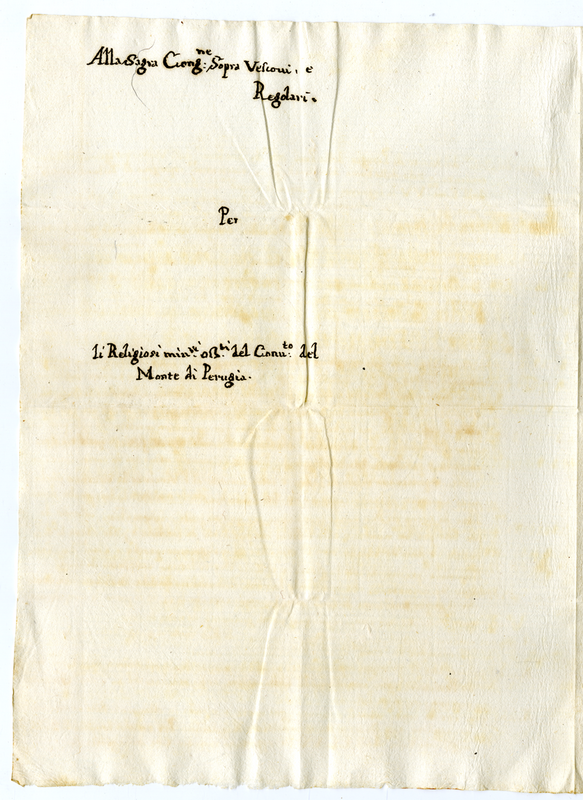 Alla Sagra Cong:ne Sopra Vescovi, e
Regolari.
Per
li Religiosi min:ri oss:ti del Conu:to del
Monte di Perugia.